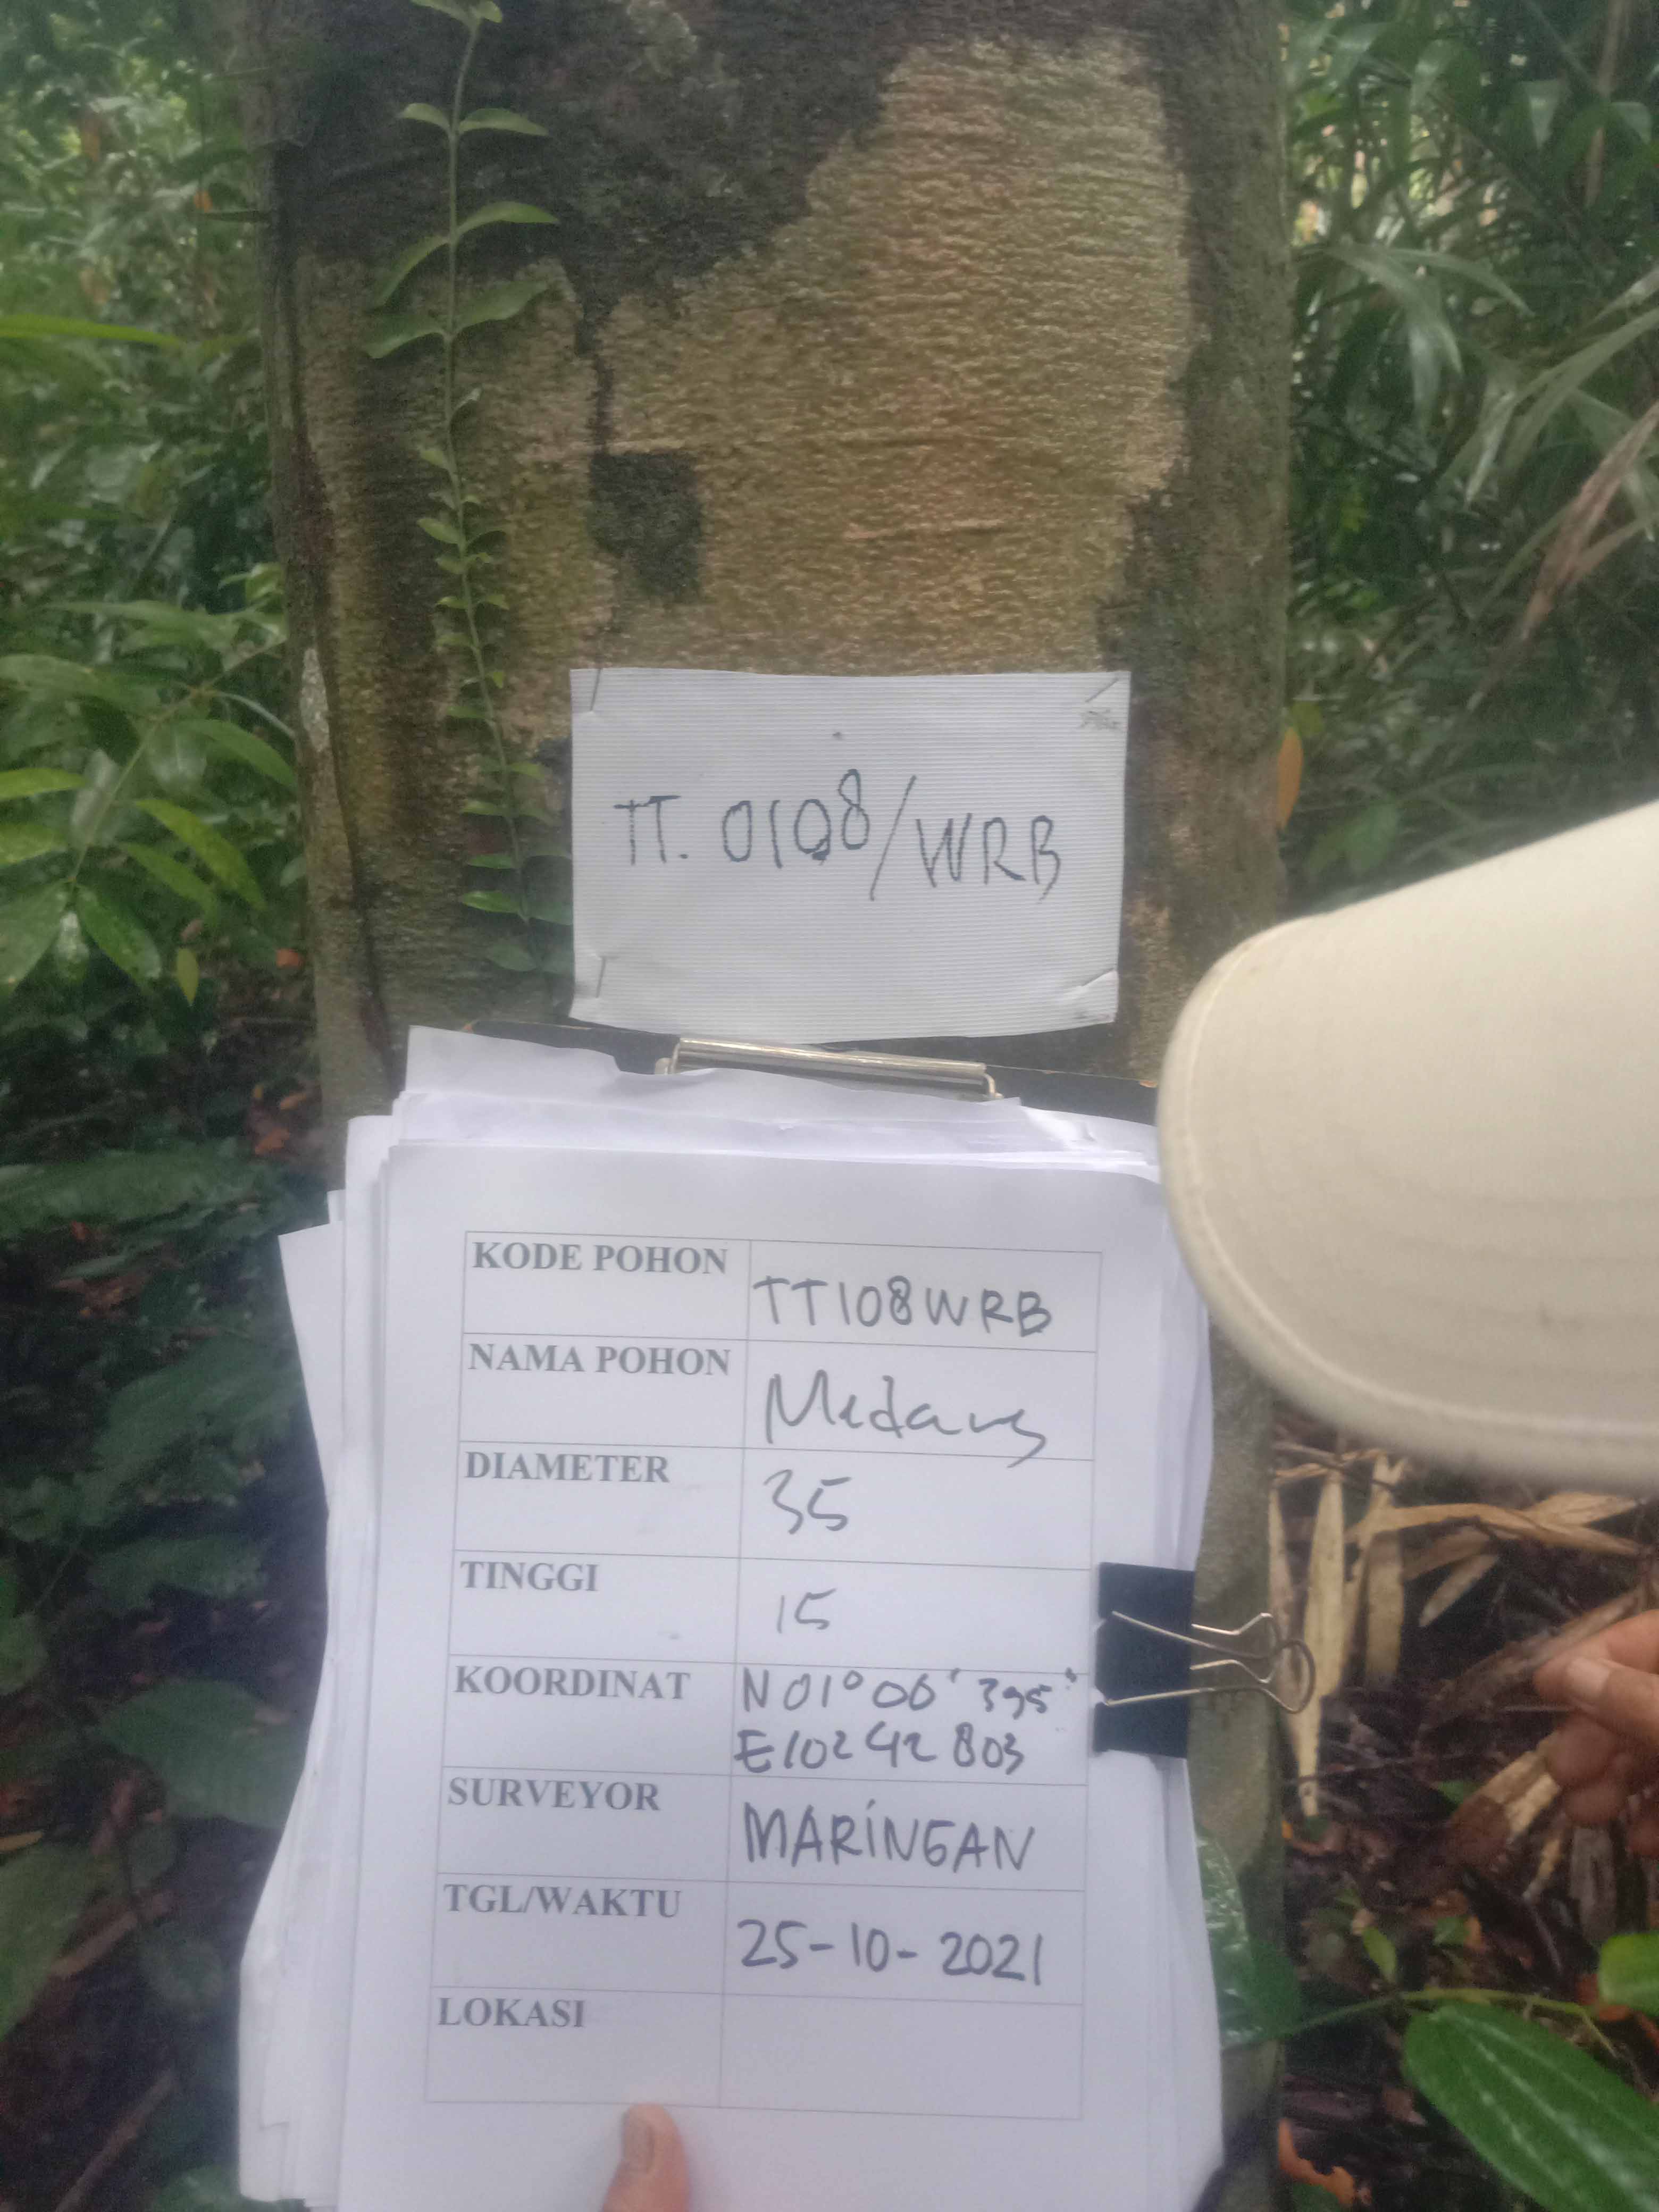 TT. 0108/WRB
KODE POHON TT108WRB
NAMA POHON Medang
DIAMETER 35
TINGGI 15
KOORDINAT N 01° 06' 395"
E 102 42 803
SURVEYOR MARINGAN
TGL/WAKTU 25-10-2021
LOKASI